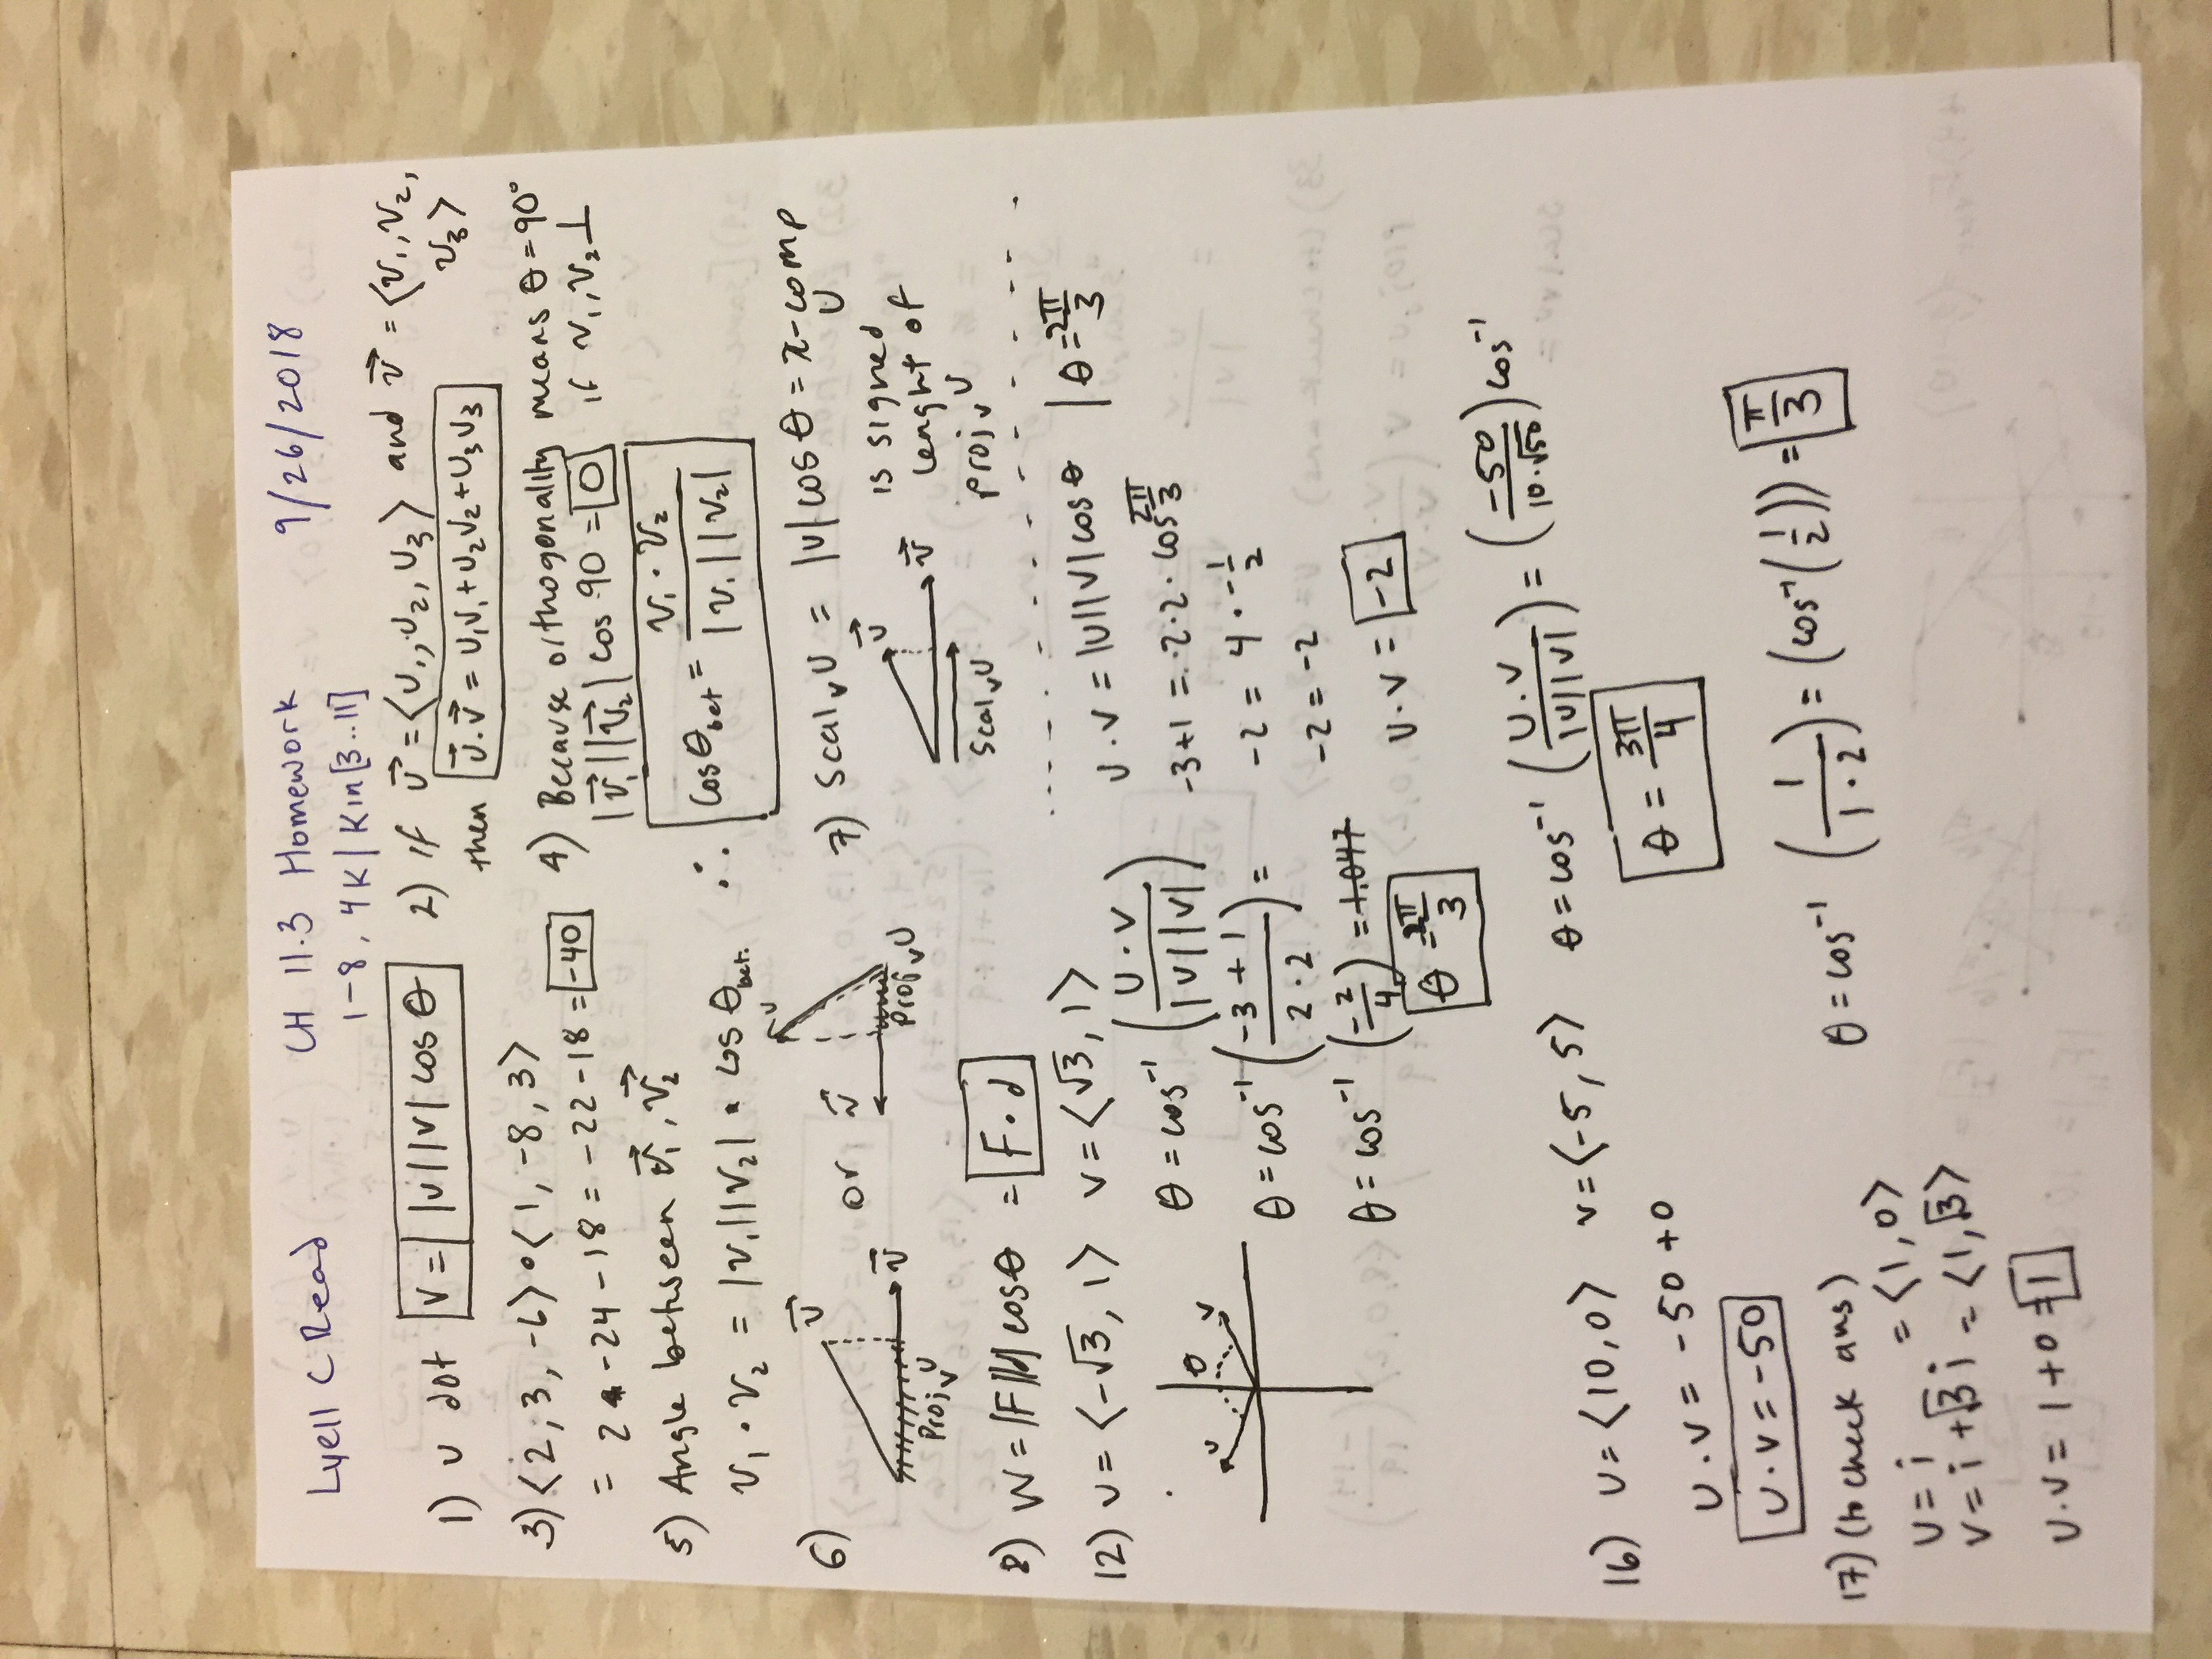 Lyell C Read
CH 11.3 Homework
9/26/2018
1-8, 4K | K in [3..11]
1) u dot v = | |u||v| cos θ
2) if u⃗ = ⟨u₁, u₂, u₃⟩ and v⃗ = ⟨v₁, v₂,
v₃⟩
then u⃗·v⃗ = u₁v₁+u₂v₂+u₃v₃
3) ⟨2, 3, -6⟩ • ⟨1, -8, 3⟩
= 2 -24 -18 = -22 -18 = -40
4) Because orthogonality means θ = 90°
|v⃗₁||v⃗₂| cos 90 = 0 if v₁, v₂ ⊥
5) Angle between v⃗₁, v⃗₂
v₁ · v₂ = |v₁||v₂| · cos θbet.
∴ cos θbet = v₁ · v₂ / |v₁||v₂|
6) u⃗
v⃗
Projᵥu
or
u
v⃗
Projᵥu
7) Scalᵥu = |u| cos θ = x-comp
u
u⃗
v⃗
Scalᵥu
is signed
lenght of
projᵥu
8) W = |F||d| cos θ = F · d
12) u = ⟨-√3, 1⟩ v = ⟨√3, 1⟩
u θ v
θ = cos⁻¹ (u · v / |u||v|)
θ = cos⁻¹ (-3 + 1 / 2 · 2) =
θ = cos⁻¹ (-2/4) = 1.047
θ = 2π/3
u · v = |u||v| cos θ | θ = 2π/3
-3+1 = 2 · 2 · cos 2π/3
-2 = 4 · -1/2
-2 = -2
u · v = -2
16) u = ⟨10, 0⟩ v = ⟨-5, 5⟩ θ = cos⁻¹ (u · v / |u||v|) = (-50 / 10·√50) cos⁻¹
u · v = -50 + 0
θ = 3π/4
u · v = -50
17) (to check ans)
θ = cos⁻¹ (1 / 1 · 2) = (cos⁻¹(1/2)) = π/3
u = i = ⟨1, 0⟩
v = i + √3 j = ⟨1, √3⟩
u · v = 1 + 0 = 1